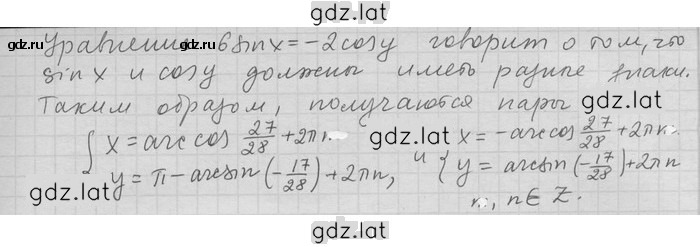 gdz.lat gdz.lat
Уравнение 6 sin x = -2 cos y говорит о том, что
sin x и cos y должны иметь разные знаки.
Таким образом, получаются пары gdz.lat
{ x = arccos 27/28 + 2πn gdz.lat x = -arccos 27/28 + 2πn
gdz.lat y = π - arcsin (-17/28) + 2πn, и { y = arcsin (-17/28) + 2πn
gdz.lat n, n ∈ Z. gdz.lat